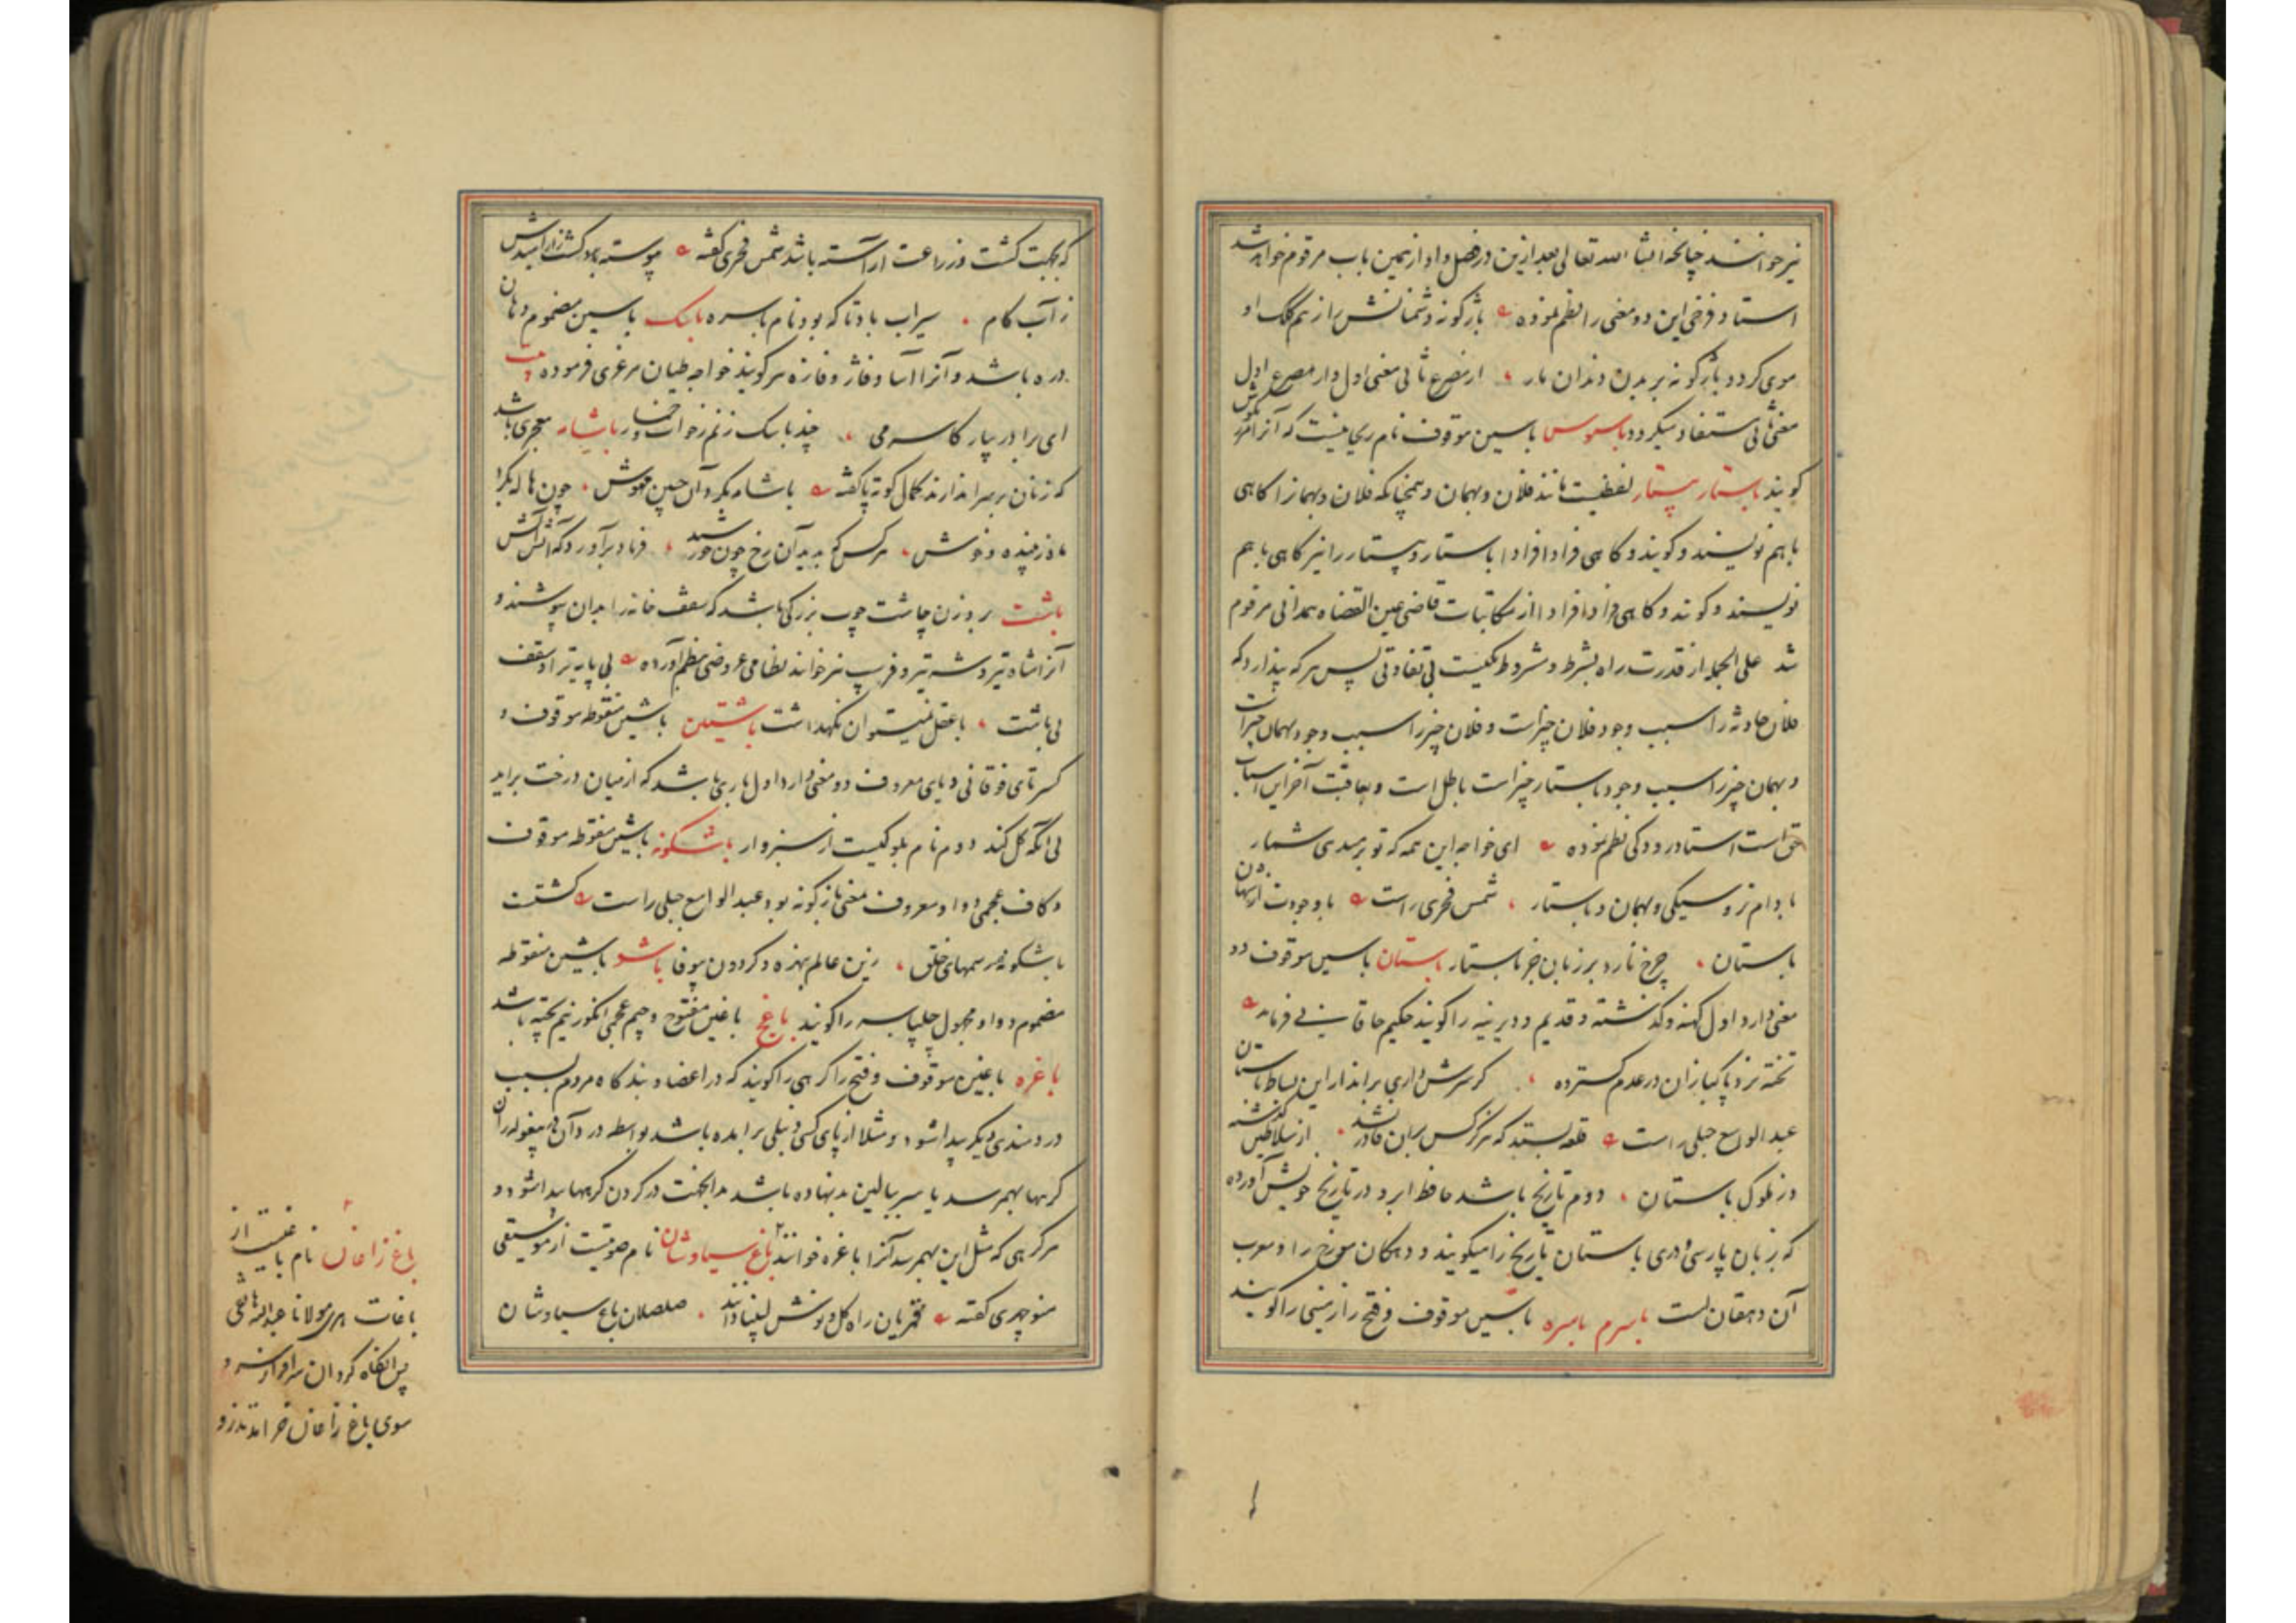 نیز خوانند چنانچه انشا الله تعالی بعد ازین در فصل واو از همین باب مرقوم خواهد شد
استاد فرخی این دو معنی را نظم نموده باژگونه دشمنانش را ز بیم کلک او
موی گردد باژگونه بر بدن دندان مار از مصرع ثانی معنی اول و از مصرع اول
معنی ثانی مستفاد میگردد باسوس باسین موقوف نام ریحانیست که آنرا مرزنگوش
گویند باستار بیستار لفظیست مانند فلان و بهمان و همچنانکه فلان و بهمانرا گاهی
باهم نویسند و گویند و گاهی فرادا فرادا باستار و بیستار را نیز گاهی باهم
نویسند و گویند و گاهی فرادا فرادا از مکاتبات قاضی عین القضاه همدانی مرقوم
شد علی الجمله از قدرت راه بشرط و مشروط یکیست بی تفاوتی پس هر که پندارد که
فلان حادثه را سبب وجود فلان چیز است و فلان چیز را سبب وجود بهمان چیز است
و بهمان چیز را سبب وجود باستار چیز است باطل است و بعاقبت آخر این اسباب
حق است استاد رودکی نظم نموده ای خواجه این همه که تو بر میدهی شمار
بادام تر و سیکی و بهمان و باستار شمس فخری راست با وجودت از شهان
باستان چرخ نارد بر زبان جز باستار باستان باسین موقوف دو
معنی دارد اول کهنه و گذشته و قدیم و دیرینه را گویند حکیم خاقانی فرماید
تخته نرد پاکبازان در عدم گسترده گر سرش داری برانداز این بساط باستان
عبد الواسع جبلی راست قلعه بستد که هرگز کس بران قادر نشد از سلاطین گذشته
وز ملوک باستان دوم تاریخ باشد حافظ ابرو در تاریخ خویش آورده
که بزبان پارسی دری باستان تاریخ را میگویند و دهکان مورخ را و معرب
آن دهقان است باسرم باسره باسین موقوف و فتح را زمینی را گویند
که بجهت کشت و زراعت آراسته باشد شمس فخری گفته پیوسته باد کشت زار امیدش
ز آب کام سیراب باد تا که بود نام باسره باسک باسین مضموم دهان
دره باشد و آنرا آسا و فاژ و فاژه نیز گویند خواجه طیان مرغزی فرموده بیت
ای برادر بیار کاسه می چند باسک زنم ز خواب و خمار باشامه معجری باشد
که زنان بر سر اندازند کمال کوته پا گفته باشامه بگرد آن جبین مهوش چون هاله بگرد
ماه زیبنده و خوش هر کس که بدید آن رخ چون خورشید فریاد برآورد که آتش آتش
باشت بر وزن چاشت چوب بزرگی باشد که سقف خانه را بدان پوشند و
آنرا شاه تیر و شه تیر و فرسب نیز خوانند نظامی عروضی بنظم آورده بی پایه تیر او سقف
بی باشت با عقل نمیتوان نگهداشت باشتین باشین منقوطه موقوف و
کسر تای فوقانی و یای معروف دو معنی دارد اول باری باشد که از میان درخت براید
بی آنکه گل کند دوم نام بلوکیست از سبزوار باشگونه باشین منقوطه موقوف
و کاف عجمی و واو معروف معنی بازگونه بود عبد الواسع جبلی راست گشتست
باشگونه رسمهای خلق زین عالم بهره و گردون بیوفا باشو باشین منقوطه
مضموم و واو مجهول چلپاسه را گویند باغج باغین مفتوح و جیم عجمی انگور نیم پخته باشد
باغره باغین موقوف و فتح را گرهی را گویند که در اعضا و بندگاه مردم بسبب
دردمندی دیگر پیدا شود و مثلا از پای کسی دنبلی برامده باشد بواسطه درد آن در بیغوله ران
گرهها بهم رسد یا سر ببالین بد نهاده باشد بدانجهت در گردن گرهها پیدا شود و
هر گرهی که مثل این بهم رسد آنرا باغره خوانند باغ سیاوشان نام صوتیست از موسیقی
منوچهری گفته قمریان راه گل و نوش لبینا دانند صلصلان باغ سیاوشان
باغ زاغان نام باغیست از
باغات هری مولانا عبد الله هاتفی
پس آنگاه گردان سرافراز سرو
سوی باغ زاغان خرامد تذرو